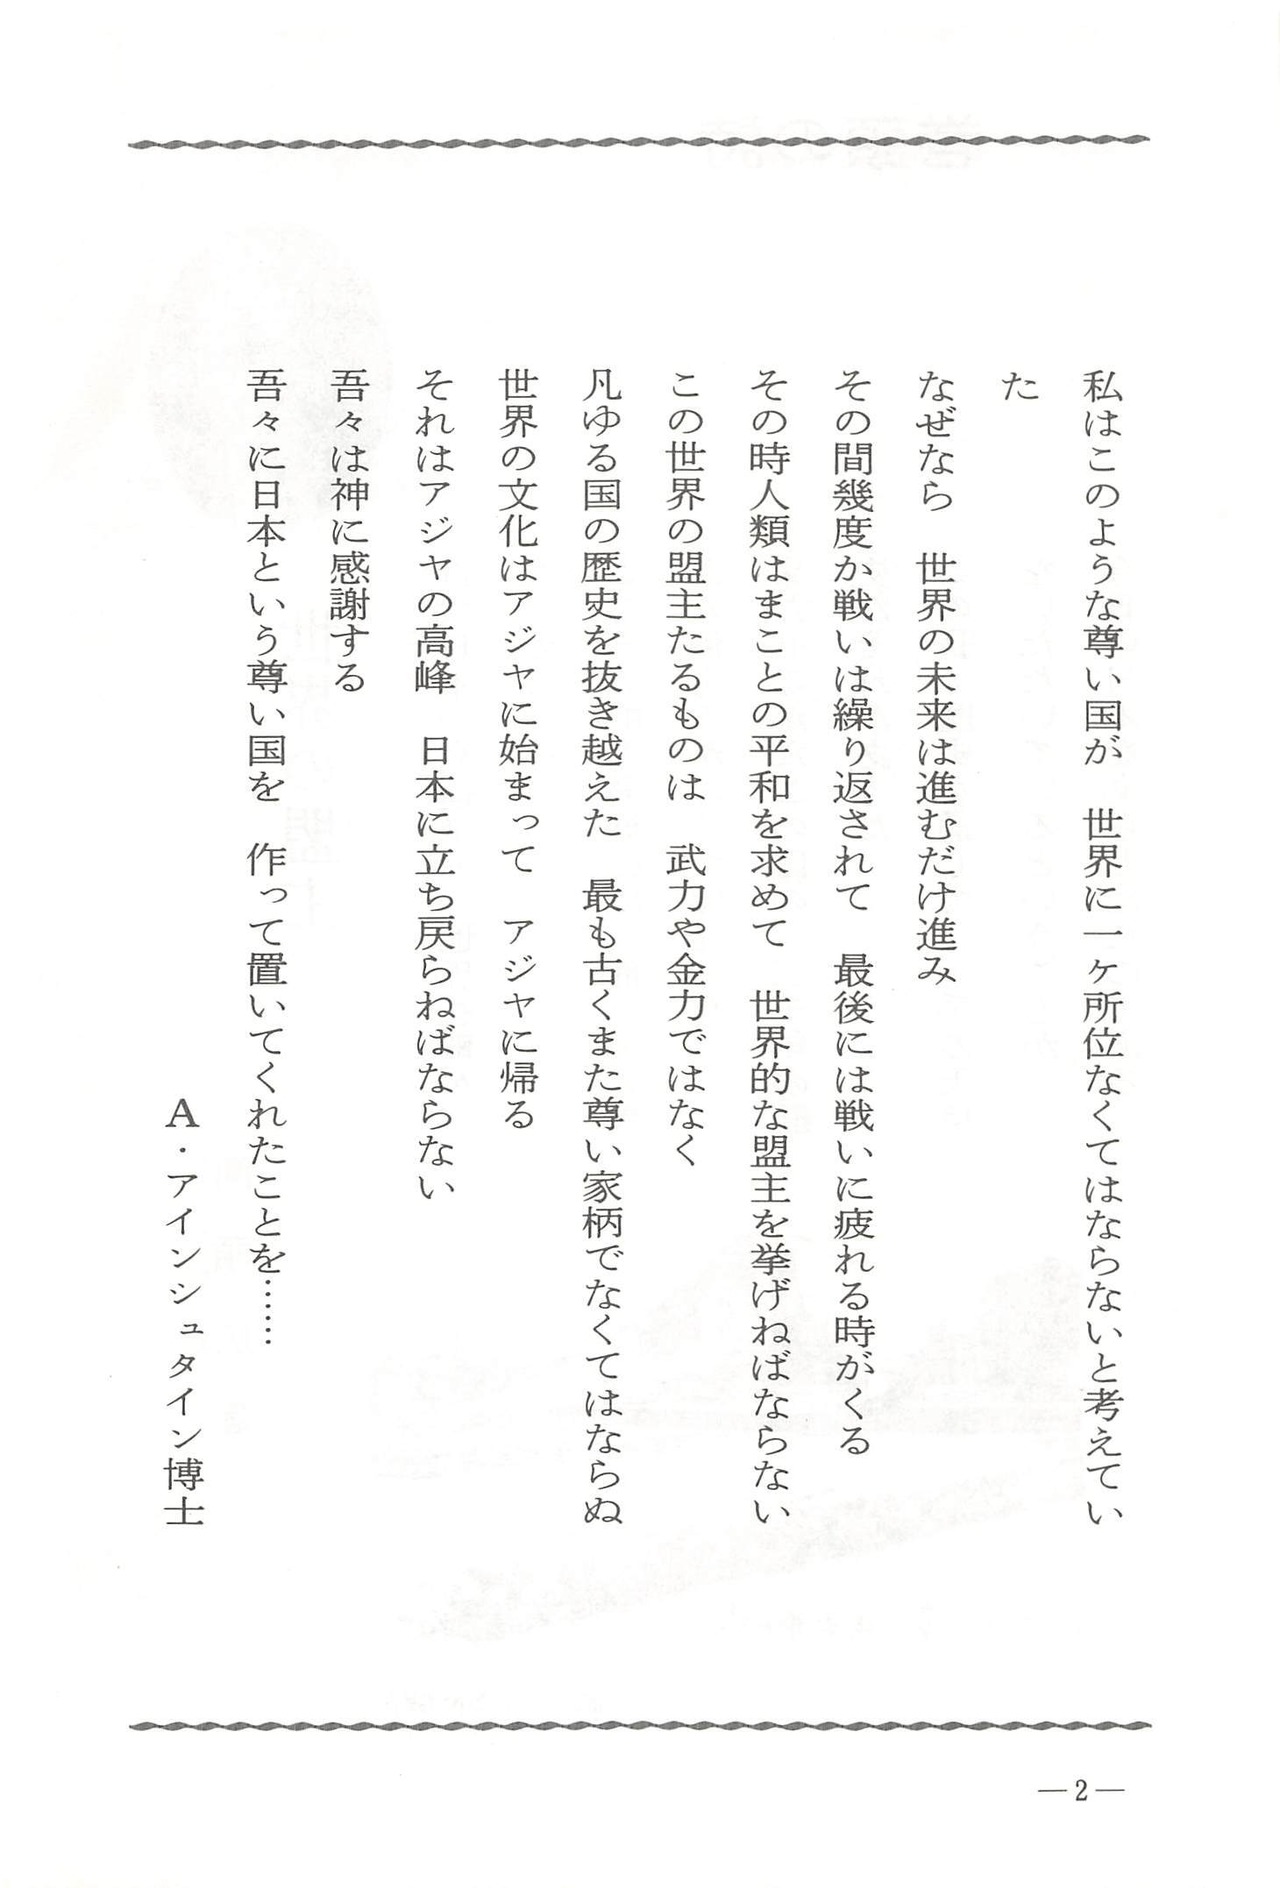 私はこのような尊い国が　世界に一ヶ所位なくてはならないと考えてい
た
なぜなら　世界の未来は進むだけ進み
その間幾度か戦いは繰り返されて　最後には戦いに疲れる時がくる
その時人類はまことの平和を求めて　世界的な盟主を挙げねばならない
この世界の盟主たるものは　武力や金力ではなく
凡ゆる国の歴史を抜き越えた　最も古くまた尊い家柄でなくてはならぬ
世界の文化はアジヤに始まって　アジヤに帰る
それはアジヤの高峰　日本に立ち戻らねばならない
吾々は神に感謝する
吾々に日本という尊い国を　作って置いてくれたことを……
A・アインシュタイン博士
—2—